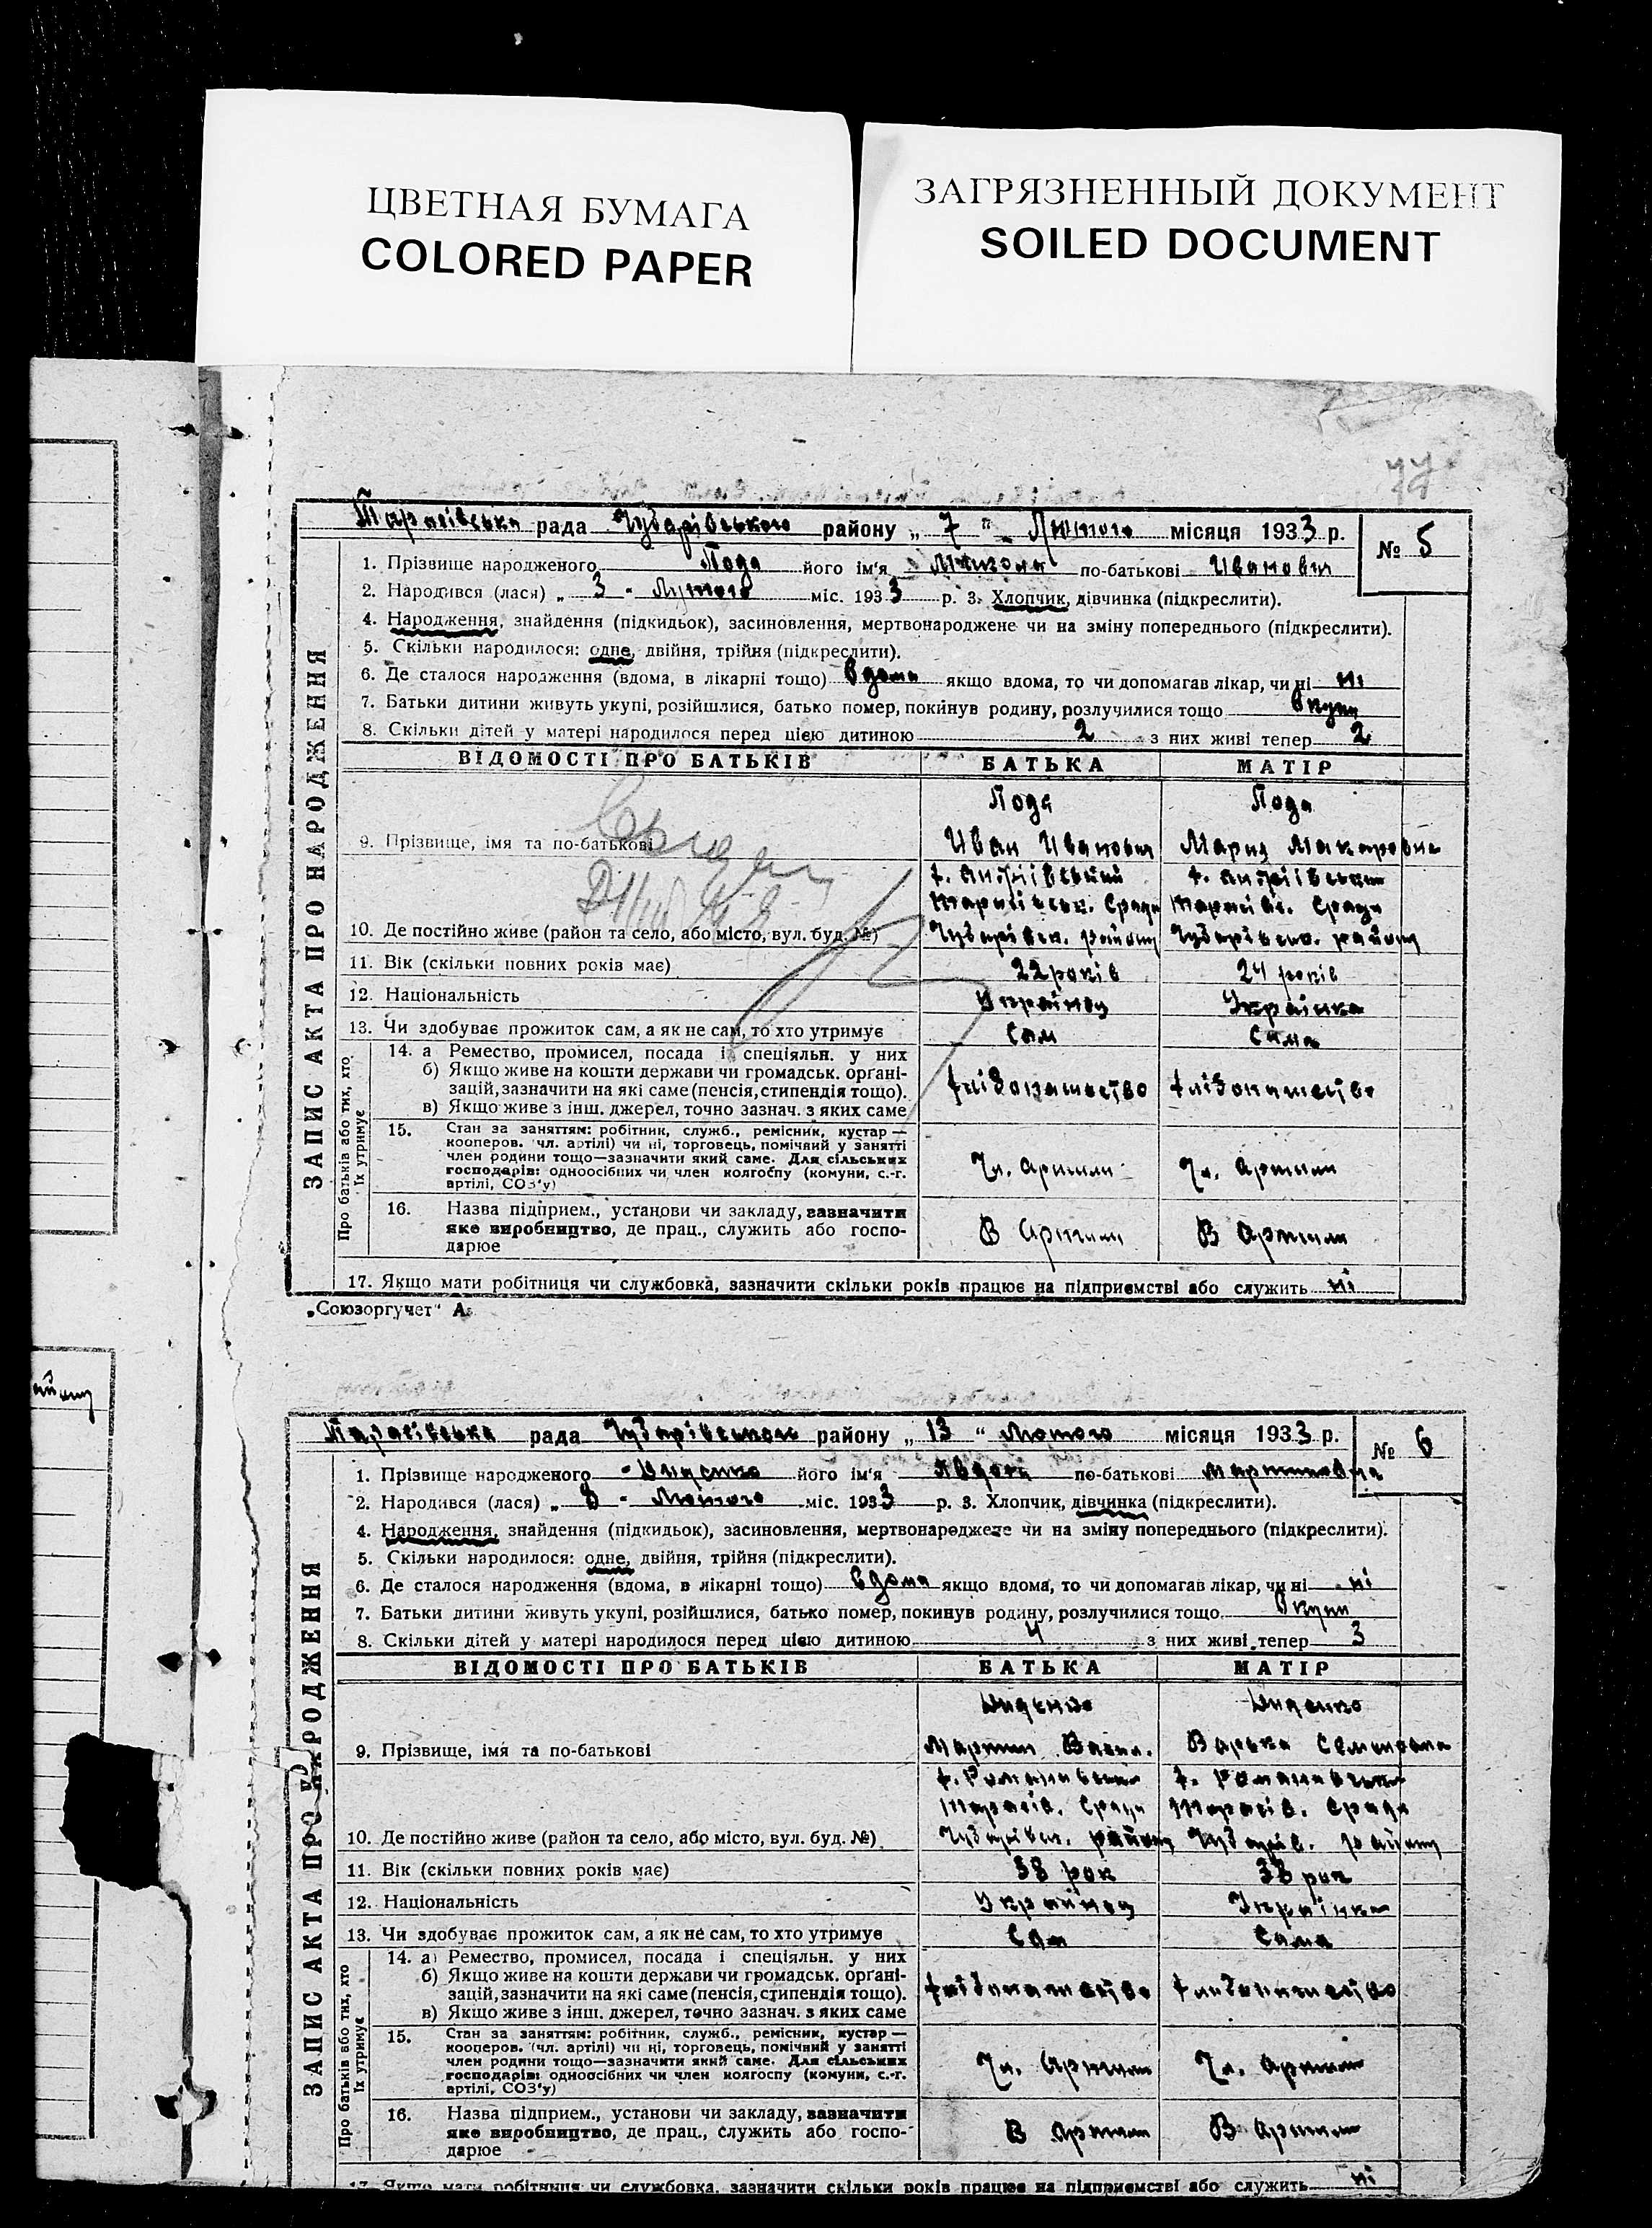 ЦВЕТНАЯ БУМАГА
COLORED PAPER
ЗАГРЯЗНЕННЫЙ ДОКУМЕНТ
SOILED DOCUMENT
77
Тарасівська рада Чубарівського району „ 7 " Лютого місяця 1933 р.
№ 5
1. Прізвище народженого Пода його ім'я Микола по-батькові Иванович
2. Народився (лася) „ 3 - Лютого міс. 1933 р. 3. Хлопчик, дівчинка (підкреслити).
4. Народження, знайдення (підкидьок), засиновлення, мертвонароджене чи на зміну попереднього (підкреслити).
5. Скільки народилося: одне, двійня, трійня (підкреслити).
6. Де сталося народження (вдома, в лікарні тощо) вдома якщо вдома, то чи допомагав лікар, чи ні ні
7. Батьки дитини живуть укупі, розійшлися, батько помер, покинув родину, розлучилися тощо вкупі
8. Скільки дітей у матері народилося перед цією дитиною 2 з них живі тепер 2
ЗАПИС АКТА ПРО НАРОДЖЕННЯ
ВІДОМОСТІ ПРО БАТЬКІВ БАТЬКА МАТІР
Пода Пода
9. Прізвище, імя та по-батькові Иван Иванович Мария Макаровна
х. Андріївський х. Андріївськи
Тарасівськ. Сради Тарасівс. Сради
10. Де постійно живе (район та село, або місто, вул. буд. №) Чубарівск. району Чубарівсько. району
11. Вік (скільки повних років має) 22 років 24 років
12. Національність Українец Українка
13. Чи здобуває прожиток сам, а як не сам, то хто утримує Сам Сама
Про батьків або тих, хто їх утримує
14. а Ремество, промисел, посада і спеціяльн. у них
б) Якщо живе на кошти держави чи громадськ. орґані-
зацій, зазначити на які саме (пенсія, стипендія тощо). хлібопашество хлібопашество
в) Якщо живе з інш. джерел, точно зазнач. з яких саме
15. Стан за заняттям: робітник, служб., ремісник, кустар —
кооперов. чл. артілі) чи ні, торговець, помічний у занятті
член родини тощо—зазначити який саме. Для сільських
господарів: одноосібних чи член колгоспу (комуни, с.-г.
артілі, СОЗ'у) Чл. Артили Чл. Артили
16. Назва підприєм., установи чи закладу, зазначити
яке виробництво, де прац., служить або госпо-
дарює В Артили В Артили
17. Якщо мати робітниця чи службовка, зазначити скільки років працює на підприємстві або служить ні
„Союзоргучет" А.
Тарасівська рада Чубарівського району „ 13 " Лютого місяця 1933 р.
№ 6
1. Прізвище народженого його ім'я Явдоха по-батькові Мартиновна
2. Народився (лася) „ 8 - Лютого міс. 1933 р. 3. Хлопчик, дівчинка (підкреслити).
4. Народження, знайдення (підкидьок), засиновлення, мертвонароджене чи на зміну попереднього (підкреслити).
5. Скільки народилося: одне, двійня, трійня (підкреслити).
6. Де сталося народження (вдома, в лікарні тощо) вдома якщо вдома, то чи допомагав лікар, чи ні ні
7. Батьки дитини живуть укупі, розійшлися, батько помер, покинув родину, розлучилися тощо вкупі
8. Скільки дітей у матері народилося перед цією дитиною 4 з них живі тепер 3
ЗАПИС АКТА ПРО НАРОДЖЕННЯ
ВІДОМОСТІ ПРО БАТЬКІВ БАТЬКА МАТІР
9. Прізвище, імя та по-батькові Мартин Васил. Варька
х. Романівськи х. Романівськи
Тарасів. Сради Тарасів. Сради
10. Де постійно живе (район та село, або місто, вул. буд. №) Чубарівск. району Чубарів. району
11. Вік (скільки повних років має) 38 рок 38 рок
12. Національність Українец Українка
13. Чи здобуває прожиток сам, а як не сам, то хто утримує Сам Сама
Про батьків або тих, хто їх утримує
14. а) Ремество, промисел, посада і спеціяльн. у них
б) Якщо живе на кошти держави чи громадськ. орґані-
зацій, зазначити на які саме (пенсія, стипендія тощо). хлібопашество хлібопашество
в) Якщо живе з інш. джерел, точно зазнач. з яких саме
15. Стан за заняттям: робітник, служб., ремісник, кустар —
кооперов. (чл. артілі) чи ні, торговець, помічний у занятті
член родини тощо—зазначити який саме. Для сільських
господарів: одноосібних чи член колгоспу (комуни, с.-г.
артілі, СОЗ'у) Чл. Артили Чл. Артили
16. Назва підприєм., установи чи закладу, зазначити
яке виробництво, де прац., служить або госпо-
дарює В Артили В Артили
17. Якщо мати робітниця чи службовка, зазначити скільки років працює на підприємстві або служить ні